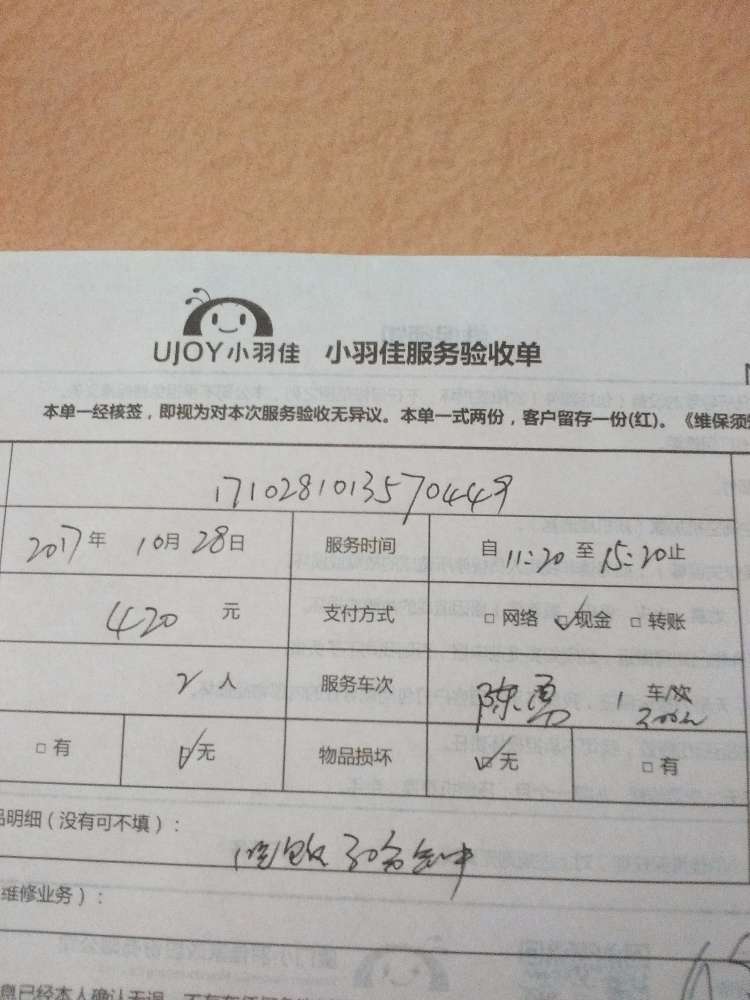 UJOY小羽佳 小羽佳服务验收单
本单一经核签，即视为对本次服务验收无异议。本单一式两份，客户留存一份(红)。《维保须
171028101357044​9
2017年 10月 28日 服务时间 自 11:20 至 15:20止
420 元 支付方式 □ 网络 ☑现金 □ 转账
2 人 服务车次 陈勇 1 车/次
300元
□ 有 ☑无 物品损坏 ☑无 □ 有
品明细（没有可不填）：
30台
维修业务）：
息已经本人确认无误